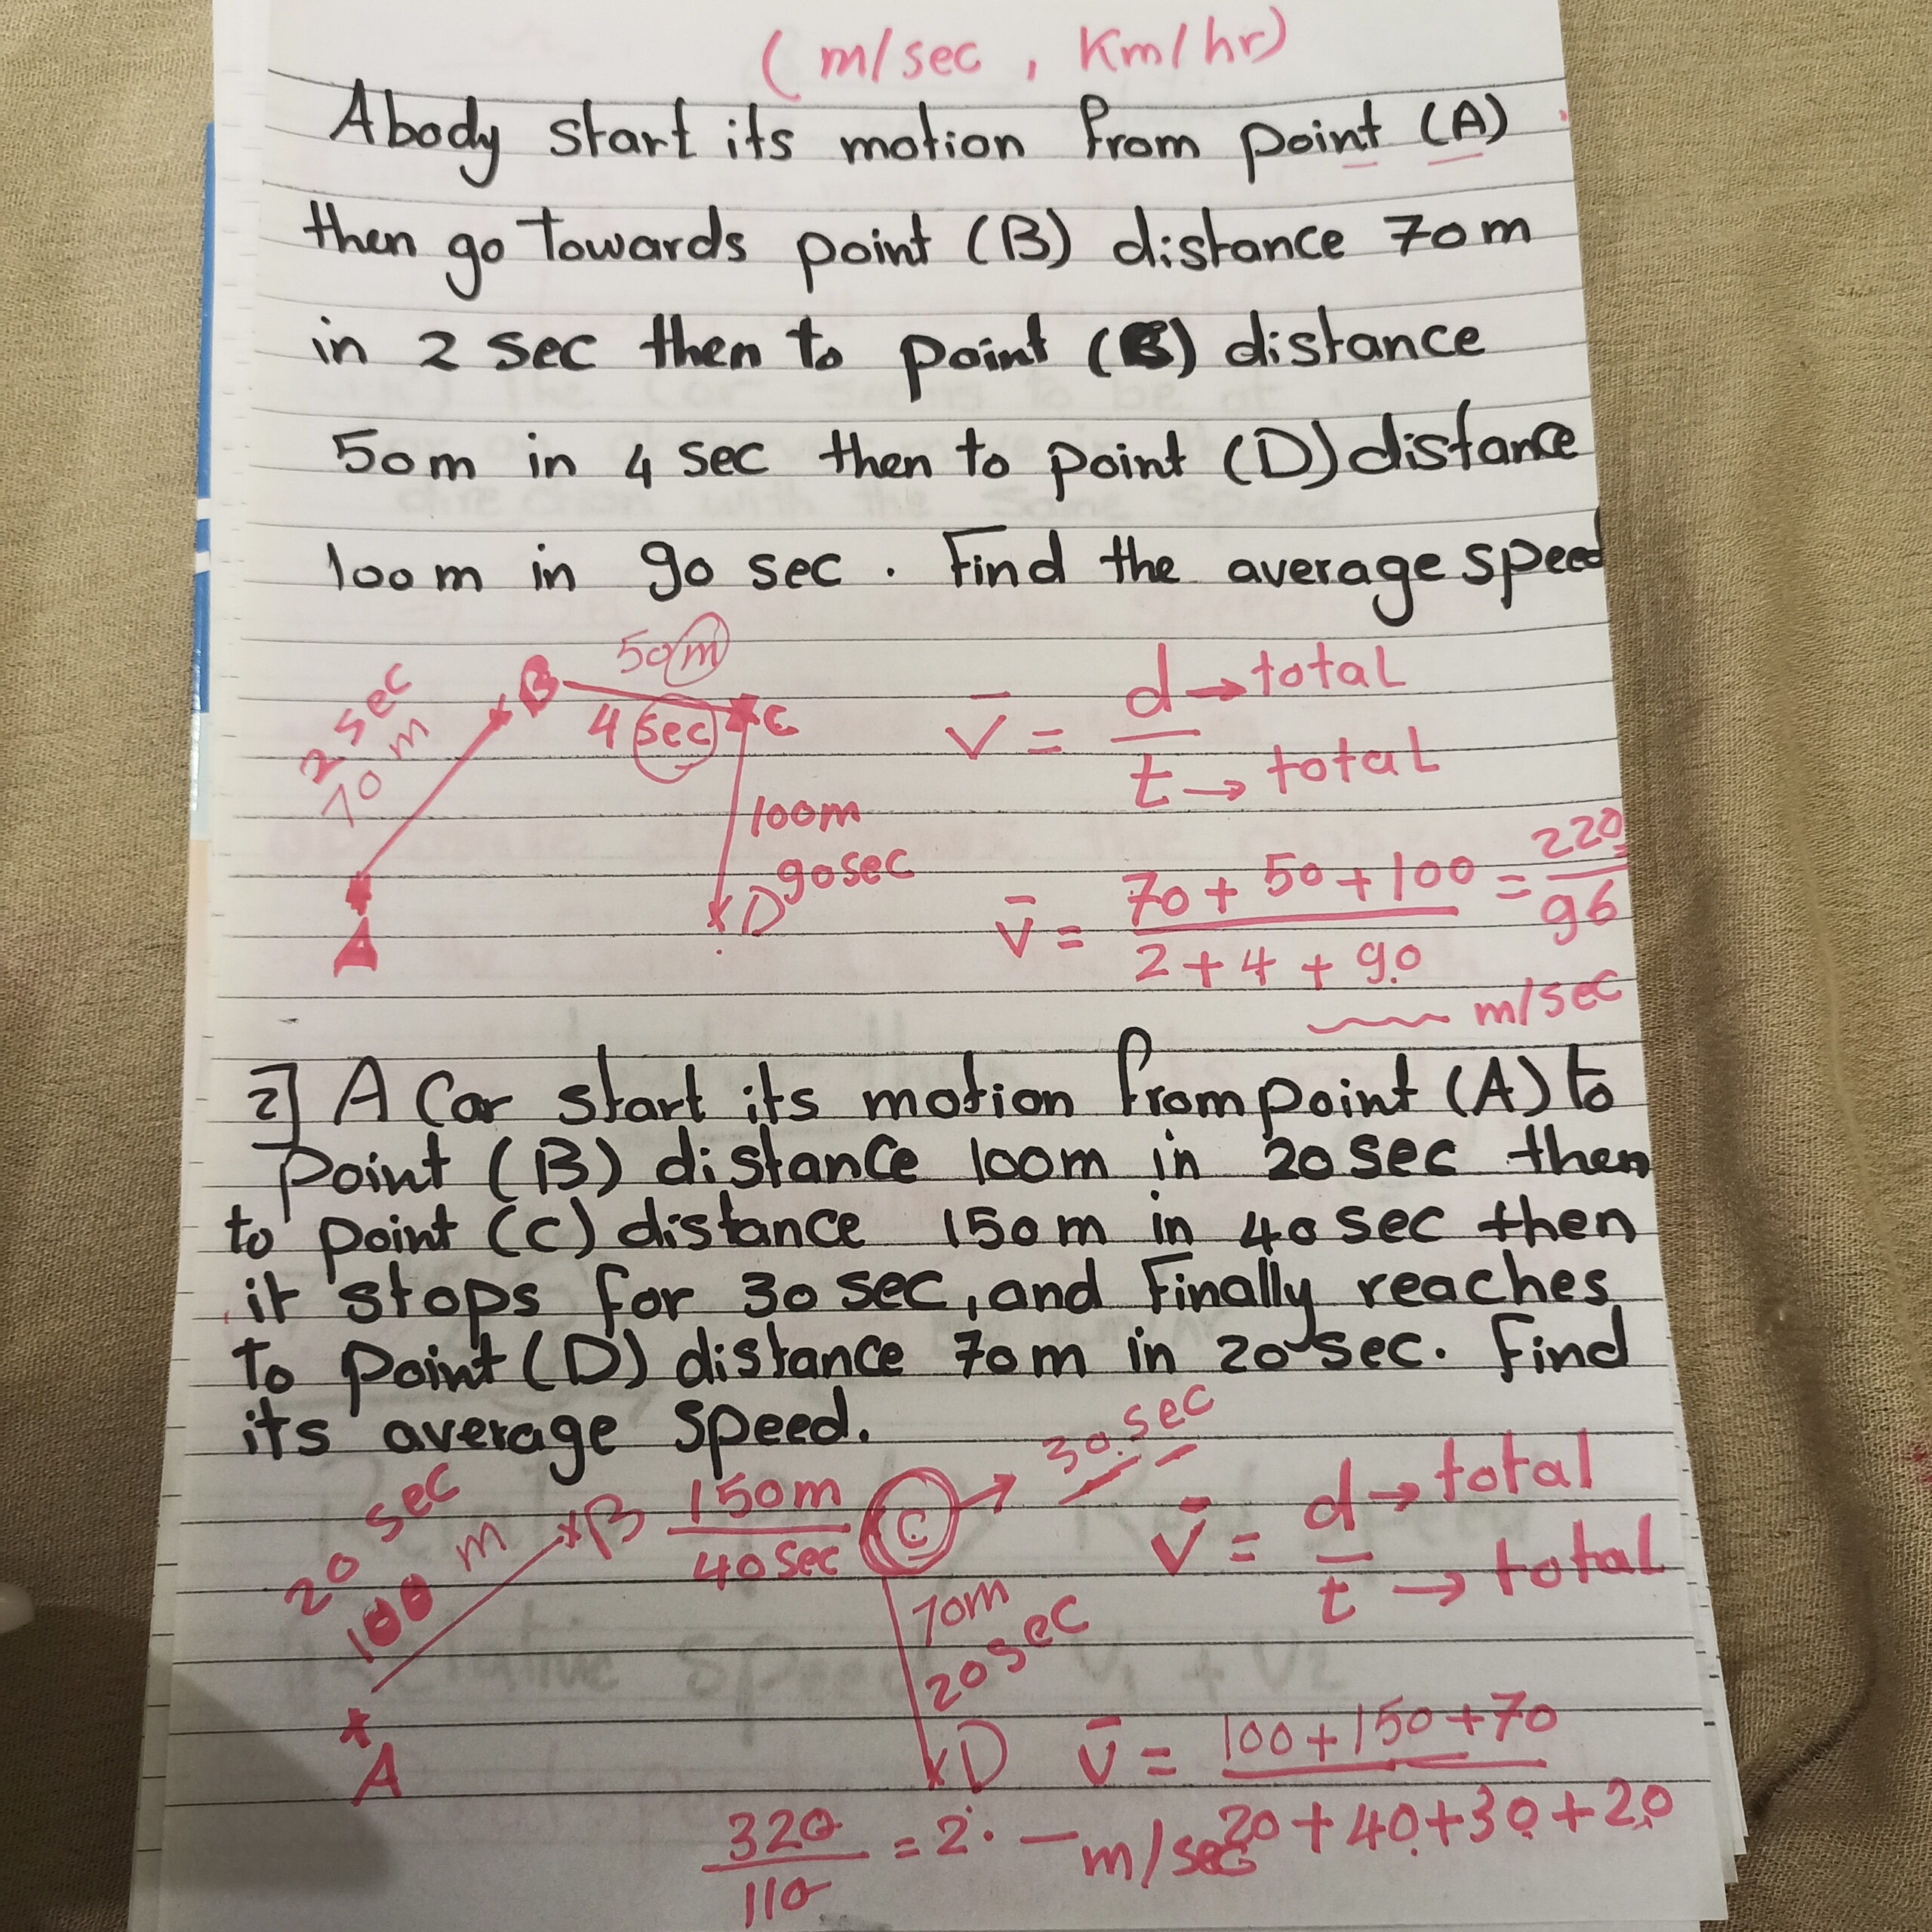 (m/sec, Km/hr)
A body start its motion from point (A)
then go Towards point (B) distance 70m
in 2 sec then to point (C) distance
50m in 4 sec then to point (D) distance
100m in 90 sec. Find the average speed
2 sec
70 m
B
50m
4 sec
C
100m
90sec
D
A
V̄ = d → total
t → total
V̄ = 70 + 50 + 100 = 220
2 + 4 + 90 96
m/sec
2] A Car start its motion from point (A) to
point (B) distance 100m in 20 sec then
to point (C) distance 150m in 40 sec then
it stops for 30 sec, and Finally reaches
to point (D) distance 70m in 20 sec. Find
its average speed.
20 sec
100 m
B
150m
40 sec
C → 30 sec
70m
20 sec
D
A
V̄ = d → total
t → total
V̄ = 100 + 150 + 70
20 + 40 + 30 + 20
320 = 2. — m/sec
110